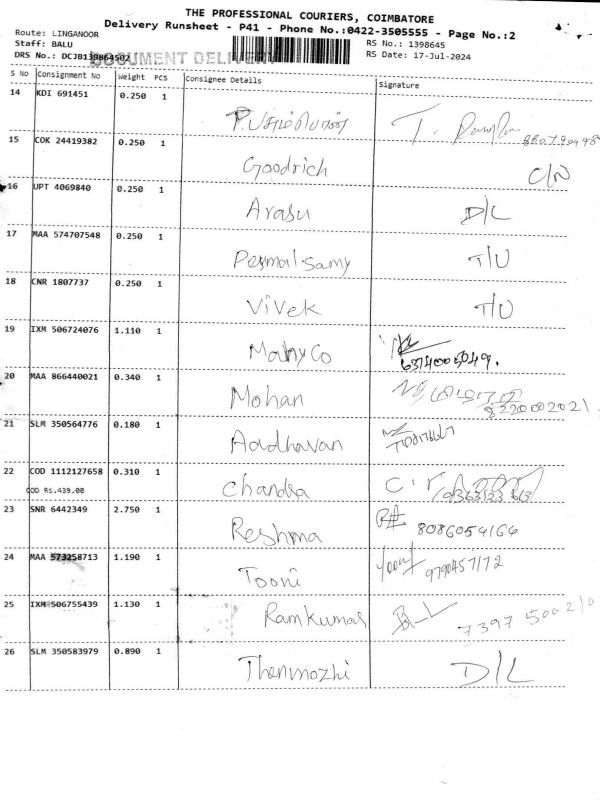 THE PROFESSIONAL COURIERS, COIMBATORE
Delivery Runsheet - P41 - Phone No.:0422-3505555 - Page No.:2
Route: LINGANOOR
Staff: BALU
RS No.: 1398645
DRS No.: DCJB139864502
DOCUMENT DELIVERY
RS Date: 17-Jul-2024
S No Consignment No Weight PCS Consignee Details Signature
14 KDI 691451 0.250 1
15 COK 24419382 0.250 1 Goodrich C/N
16 UPT 4069840 0.250 1 Arasu D/L
17 MAA 574707548 0.250 1 Permal.Samy T/U
18 CNR 1807737 0.250 1 Vivek T/U
19 IXM 506724076 1.110 1 MahyCo
6374005049.
20 MAA 866440021 0.340 1 Mohan
8220002021
21 SLM 350564776 0.180 1 Aadhavan
22 COD 1112127658 0.310 1 Chandra
COD RS.439.00
23 SNR 6442349 2.750 1 Reshma 8086054164
24 MAA 573258713 1.190 1 Tooni 9790457172
25 IXM 506755439 1.130 1 Ramkumar 7397 500210
26 SLM 350583979 0.890 1 Thenmozhi D/L